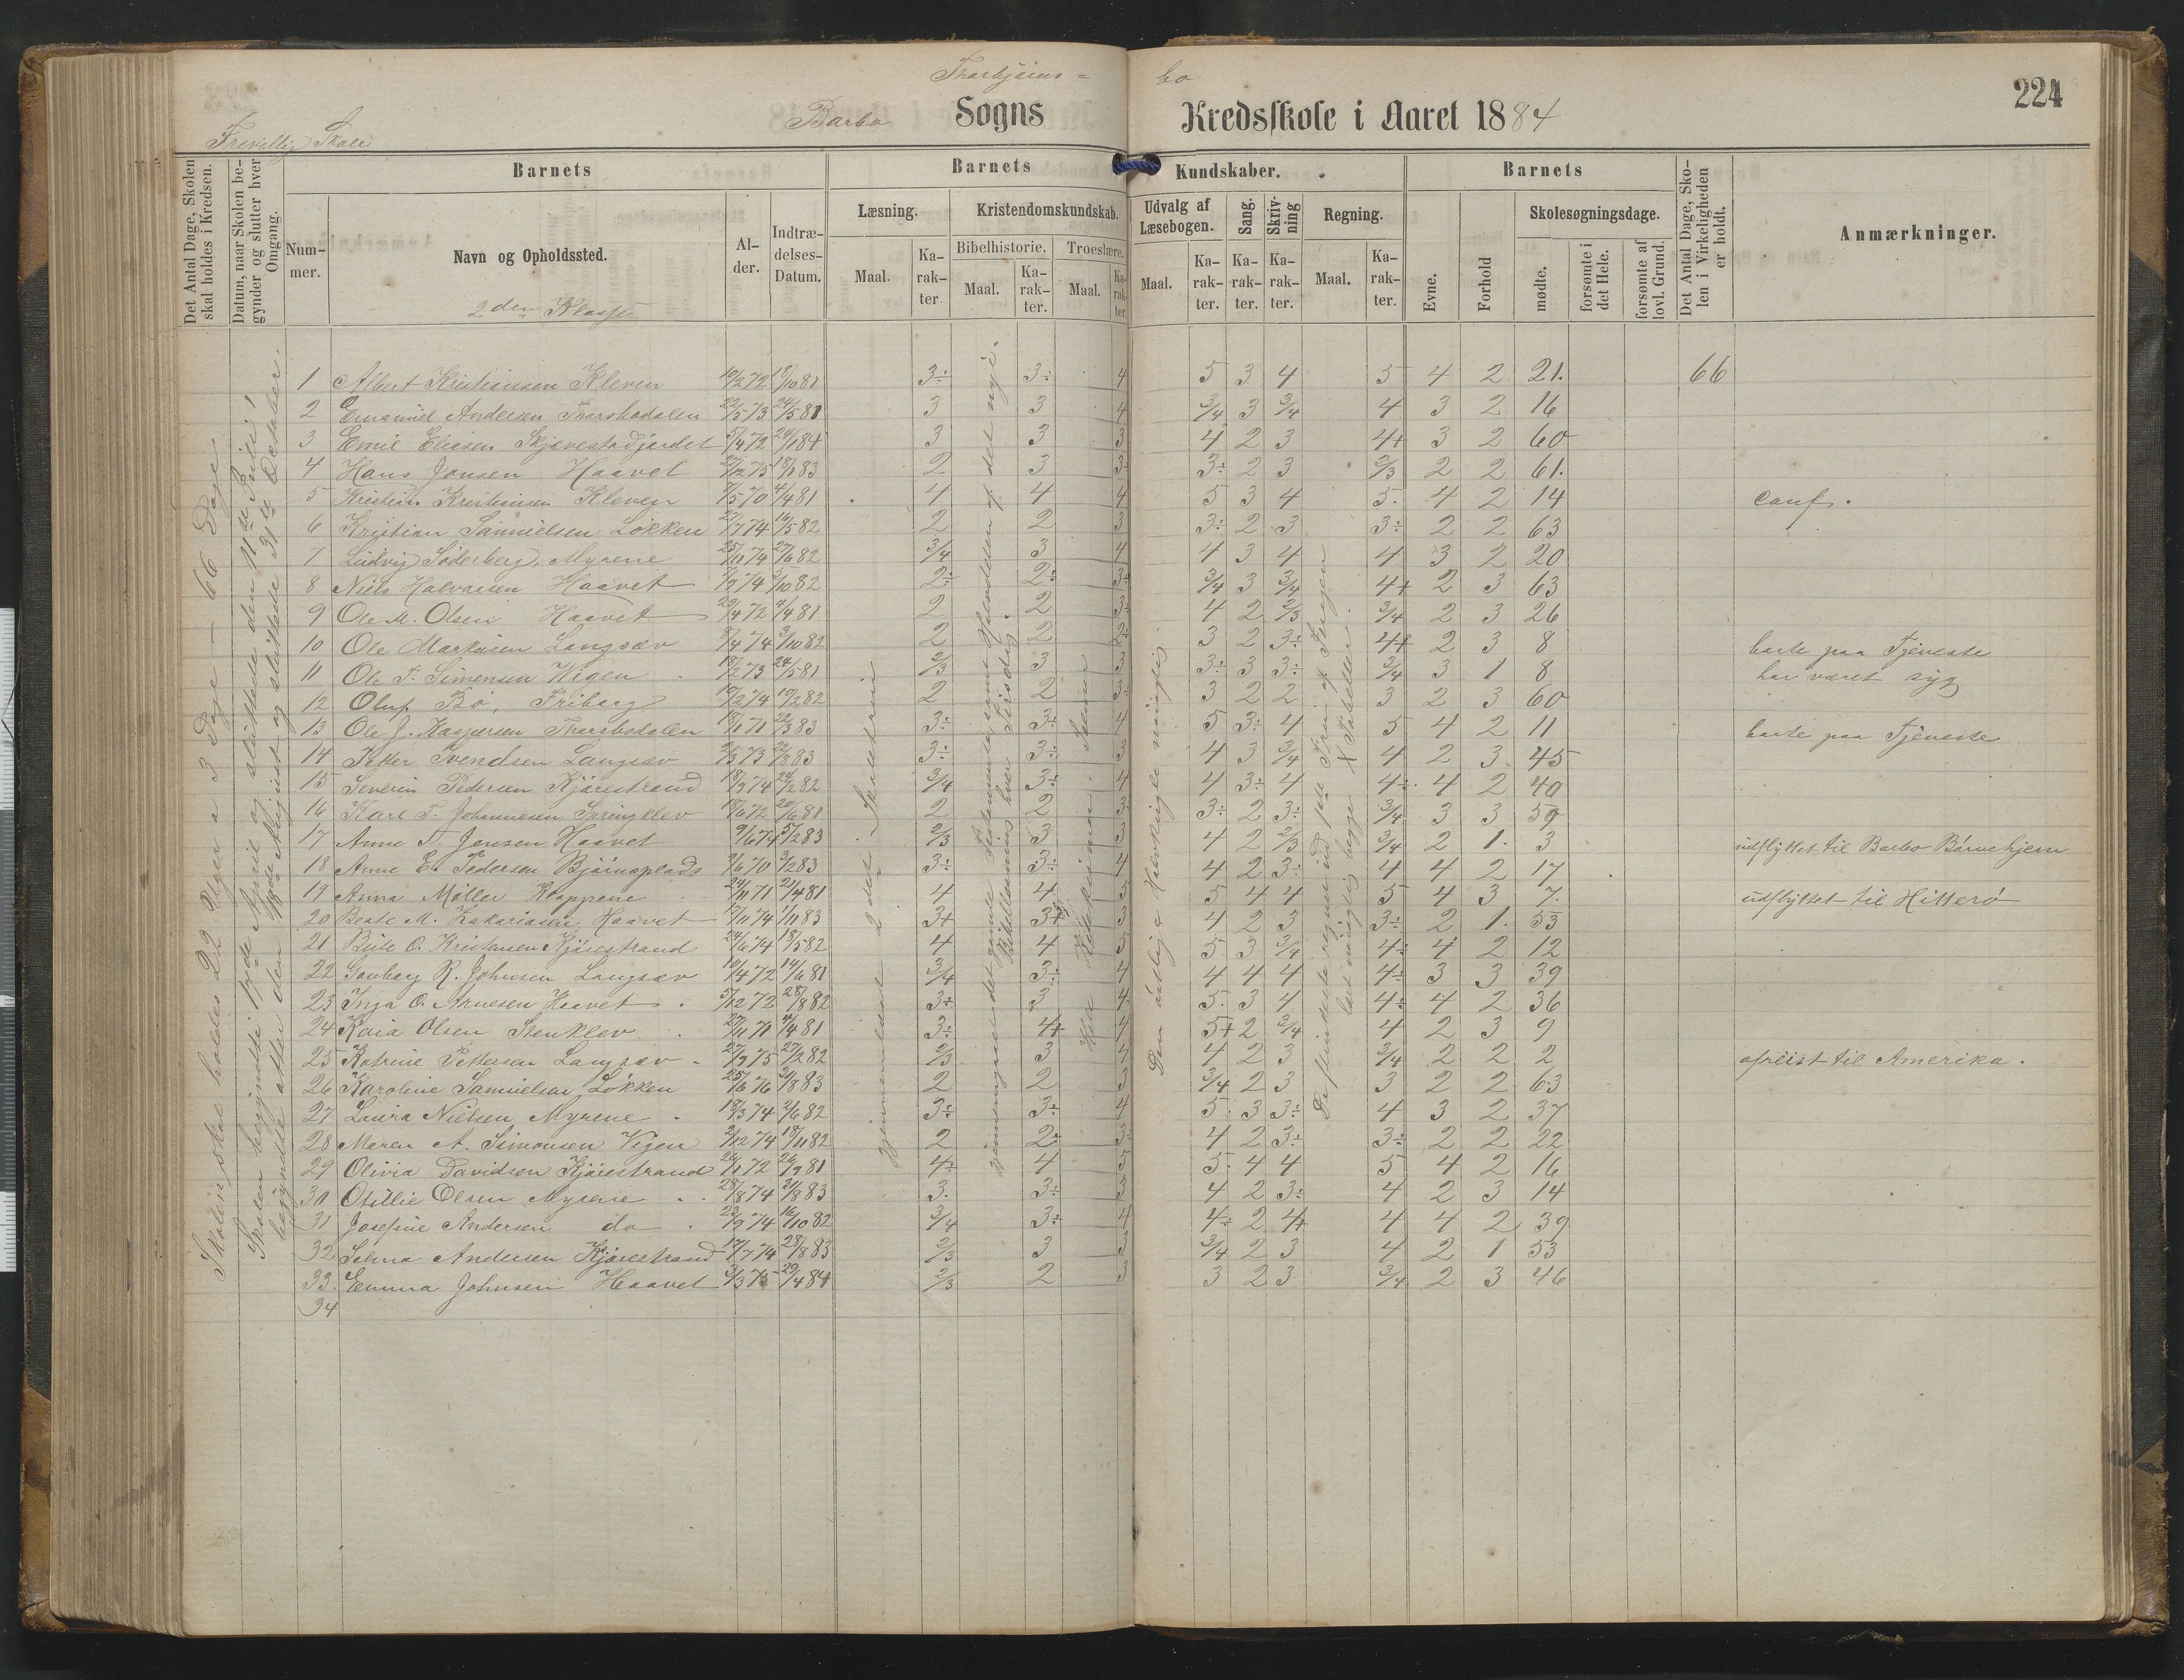 224
Barbo Sogns Kredsskole i Aaret 1884
Frivillig Skole
Det Antal Dage, Skolen skal holdes i Kredsen.
Datum, naar Skolen begynder og slutter hver Omgang.
Barnets
Barnets Kundskaber.
Barnets
Det Antal Dage, Skolen i Virkeligheden er holdt.
Anmærkninger.
Nummer.
Navn og Opholdssted.
Alder.
Indtrædelses-Datum.
Læsning.
Kristendomskundskab.
Udvalg af Læsebogen.
Sang.
Skrivning
Regning.
Evne.
Forhold
Skolesøgningsdage.
Bibelhistorie.
Troeslære.
Maal.
Karakter
Maal.
Karakter.
Maal.
Karakter.
Maal.
Karakter.
Karakter.
Karakter.
Maal.
Karakter.
mødte.
forsømte i det Hele.
forsømte af lovl. Grund.
2den Klasse
Skolen skal holdes 22 Uger a 3 Dage — 66 Dage.
1 Albert Kristiansen Kleven 19/2 72 18/10 81 3÷ 3÷ 4 5 3 4 5 4 2 21. 66
2 Emanuel Andersen 22/5 73 24/5 81 3 3 4 3/4 3 3/4 4 3 2 16
3 Emil Eliasen 5/4 72 24/1 84 3 3 3 4 2 3 4+ 3 2 60
4 Hans Jonsen Haavet 18/1 83 2 3 3÷ 3÷ 2 3 2/3 2 2 61.
5 Kristian Kristiansen Kleven 4/4 81 4 4 4 5 3 4 5. 4 2 14 conf.
6 Kristian Samuelsen Løkken 27/7 74 16/5 82 2 2 3 3÷ 2 3 3÷ 2 2 63
7 Ludvig Søderberg, Myrene 25/11 74 27/6 82 3/4 3 4 4 3 4 4 3 2 20
8 Niels Halvorsen Haavet 5/10 82 2÷ 2÷ 3÷ 3/4 3 3/4 4+ 2 3 63
9 Ole M. Olsen Haavet 29/4 72 4/4 81 2 2 3÷ 4 2 2/3 3/4 2 3 26
10 Ole Markusen Langsæv 3/10 82 2 2 2÷ 3 2 3÷ 4+ 2 3 8 borte paa Tjeneste
11 Ole T. Simensen Wigen 18/2 73 24/5 81 2/3 3 3 3÷ 3 3÷ 3/4 3 1 8 har været syg
12 Oluf Bø, Friborg 19/2 82 2 2 3÷ 3 2 2 3 2 3 60
13 Ole J. Kaspersen 3÷ 3÷ 4 5 3÷ 4 5 4 2 11 borte paa Tjeneste
14 Petter Svendsen Langsæv 3÷ 3÷ 3 4 3 3/4 4 2 3 45
15 Severin Pedersen Kjørestrand 18/9 74 24/2 82 3/4 3÷ 4 4 3÷ 4 4÷ 4 2 40
16 Karl T. Johannesen Springklev 18/6 72 20/6 81 2 2 3÷ 3÷ 2 3÷ 3/4 3 3 59
17 Anne T. Jensen Haavet 9/6 74 5/2 83 2/3 3 3 4 2 2/3 3/4 2 1. 3 udflyttet til Barbo Børnehjem
18 Anne E. Pedersen Bjørnsplads 3/2 83 3÷ 3÷ 4 4 2 3÷ 4 4 2 17
19 Anna Møller Kloppene 24/11 71 2/4 81 4 4 5 5 4 4 5 4 3 7. udflyttet til Hitterø
20 Beate M. Zakariasen Haavet 17/11 74 1/11 83 3+ 3+ 3 4 2 3 3÷ 2 1. 53
21 O. Kristensen Kjørestrand 24/6 74 18/5 82 4 4 5 5 3 3/4 4÷ 4 2 12
22 Gonborg R. Johnsen Langsæv 10/4 72 14/6 81 3/4 3÷ 4 4 4 4 4÷ 3 3 39
23 Inga O. Arnesen Haavet 5/12 72 28/8 82 3÷ 3 4 5. 3 4 4÷ 4 2 36
24 Kaia Olsen Stenklev 27/11 71 4/4 81 3÷ 4+ 4 5+ 2 3/4 4 2 3 9
25 Katrine Pettersen Langsæv 27/9 75 27/2 82 2/3 3 4 4 2 3 3/4 2 2 2 afreist til Amerika.
26 Karoline Samuelsen Løkken 25/6 76 31/8 83 2 2 3 3/4 2 3 3 2 2 63
27 Laura Nielsen Myrene 18/3 74 2/6 82 3÷ 3÷ 4 5. 3 3÷ 4 3 2 37
28 Maren A. Simonsen Vigen 2/12 74 18/11 82 2 2÷ 3÷ 4 2 3÷ 3÷ 2 2 22
29 Olivia Davidsen Kjørestrand 26/9 81 4÷ 4 5 5. 4 4 5 4 2 16
30 Otillie Olsen Myrene 28/8 74 31/8 83 3. 3÷ 3 4 2 3÷ 4 2 3 14
31 Josefine Andersen do 23/9 74 16/10 82 3/4 3÷ 4 4÷ 2 4+ 4 4 2 39
32 Selma Andersen Kjørestrand 17/7 74 28/8 83 2/3 3 3 3/4 2 3 4 2 1 53
33. Emma Johnsen Haavet 3/3 75 29/4 84 2/3 2 3 3 2 3 3/4 2 3 46
34